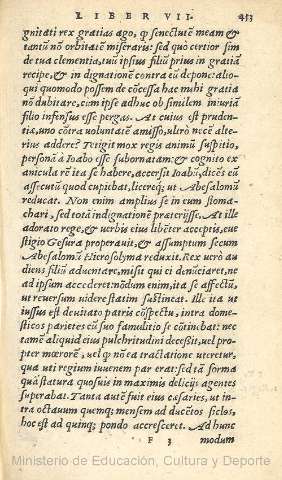 LIBER VII. 453
gnitati rex gratias ago, qp senectutē meam &
tantū nō orbitatē miseraris: sed quo certior sim
de tua clementia, tuū ipsius filiū prius in gratiā
recipe, & in dignationē contra eū depone: alio-
qui quomodo possem de cōcessa hac mihi gratia
nō dubitare, cum ipse adhuc ob similem iniuriā
filio infensus esse pergas. At cuius est pruden-
tiæ, uno cōtra voluntatē amisso, ultrò necē alte-
rius addere? Tetigit mox regis animū suspitio,
personā à Ioabo esse subornatam: & cognito ex
anicula rē ita se habere, accersit Ioabū, dicēs eū
assecutū quod cupiebat, liceretq; ut Abesalomū
reducat. Non enim amplius se in eum stoma-
chari, sed totā indignationē præterijsse. At ille
adorato rege, & verbis eius libēter acceptis, eue
stigio Gesura properauit, & assumptum secum
Abesalomū Hierosolyma reduxit. Rex uerò au
diens filiū aduentare, misit qui ei denūciaret, ne
ad ipsum accederet: nōdum enim, ita se affectū,
ut reuersum uidere statim sustineat. Ille ita ut
iussus est deuitato patris cōspectu, intra dome-
sticos parietes cū suo famulitio se cōtinebat: nec
tamē aliquid eius pulchritudini decessit, uel pro-
pter mœrorē, uel qp nō ea tractatione uteretur,
qua uti regium iuuenem par erat: sed tā forma
quā statura quosuis in maximis delicijs agentes
superabat. Tanta autē fuit eius cæsaries, ut in-
tra octauum quemq; mensem ad ducētos siclos,
hoc est ad quinq; pondo accresceret. Ad hunc
F 3 modum
Ministerio de Educación, Cultura y Deporte